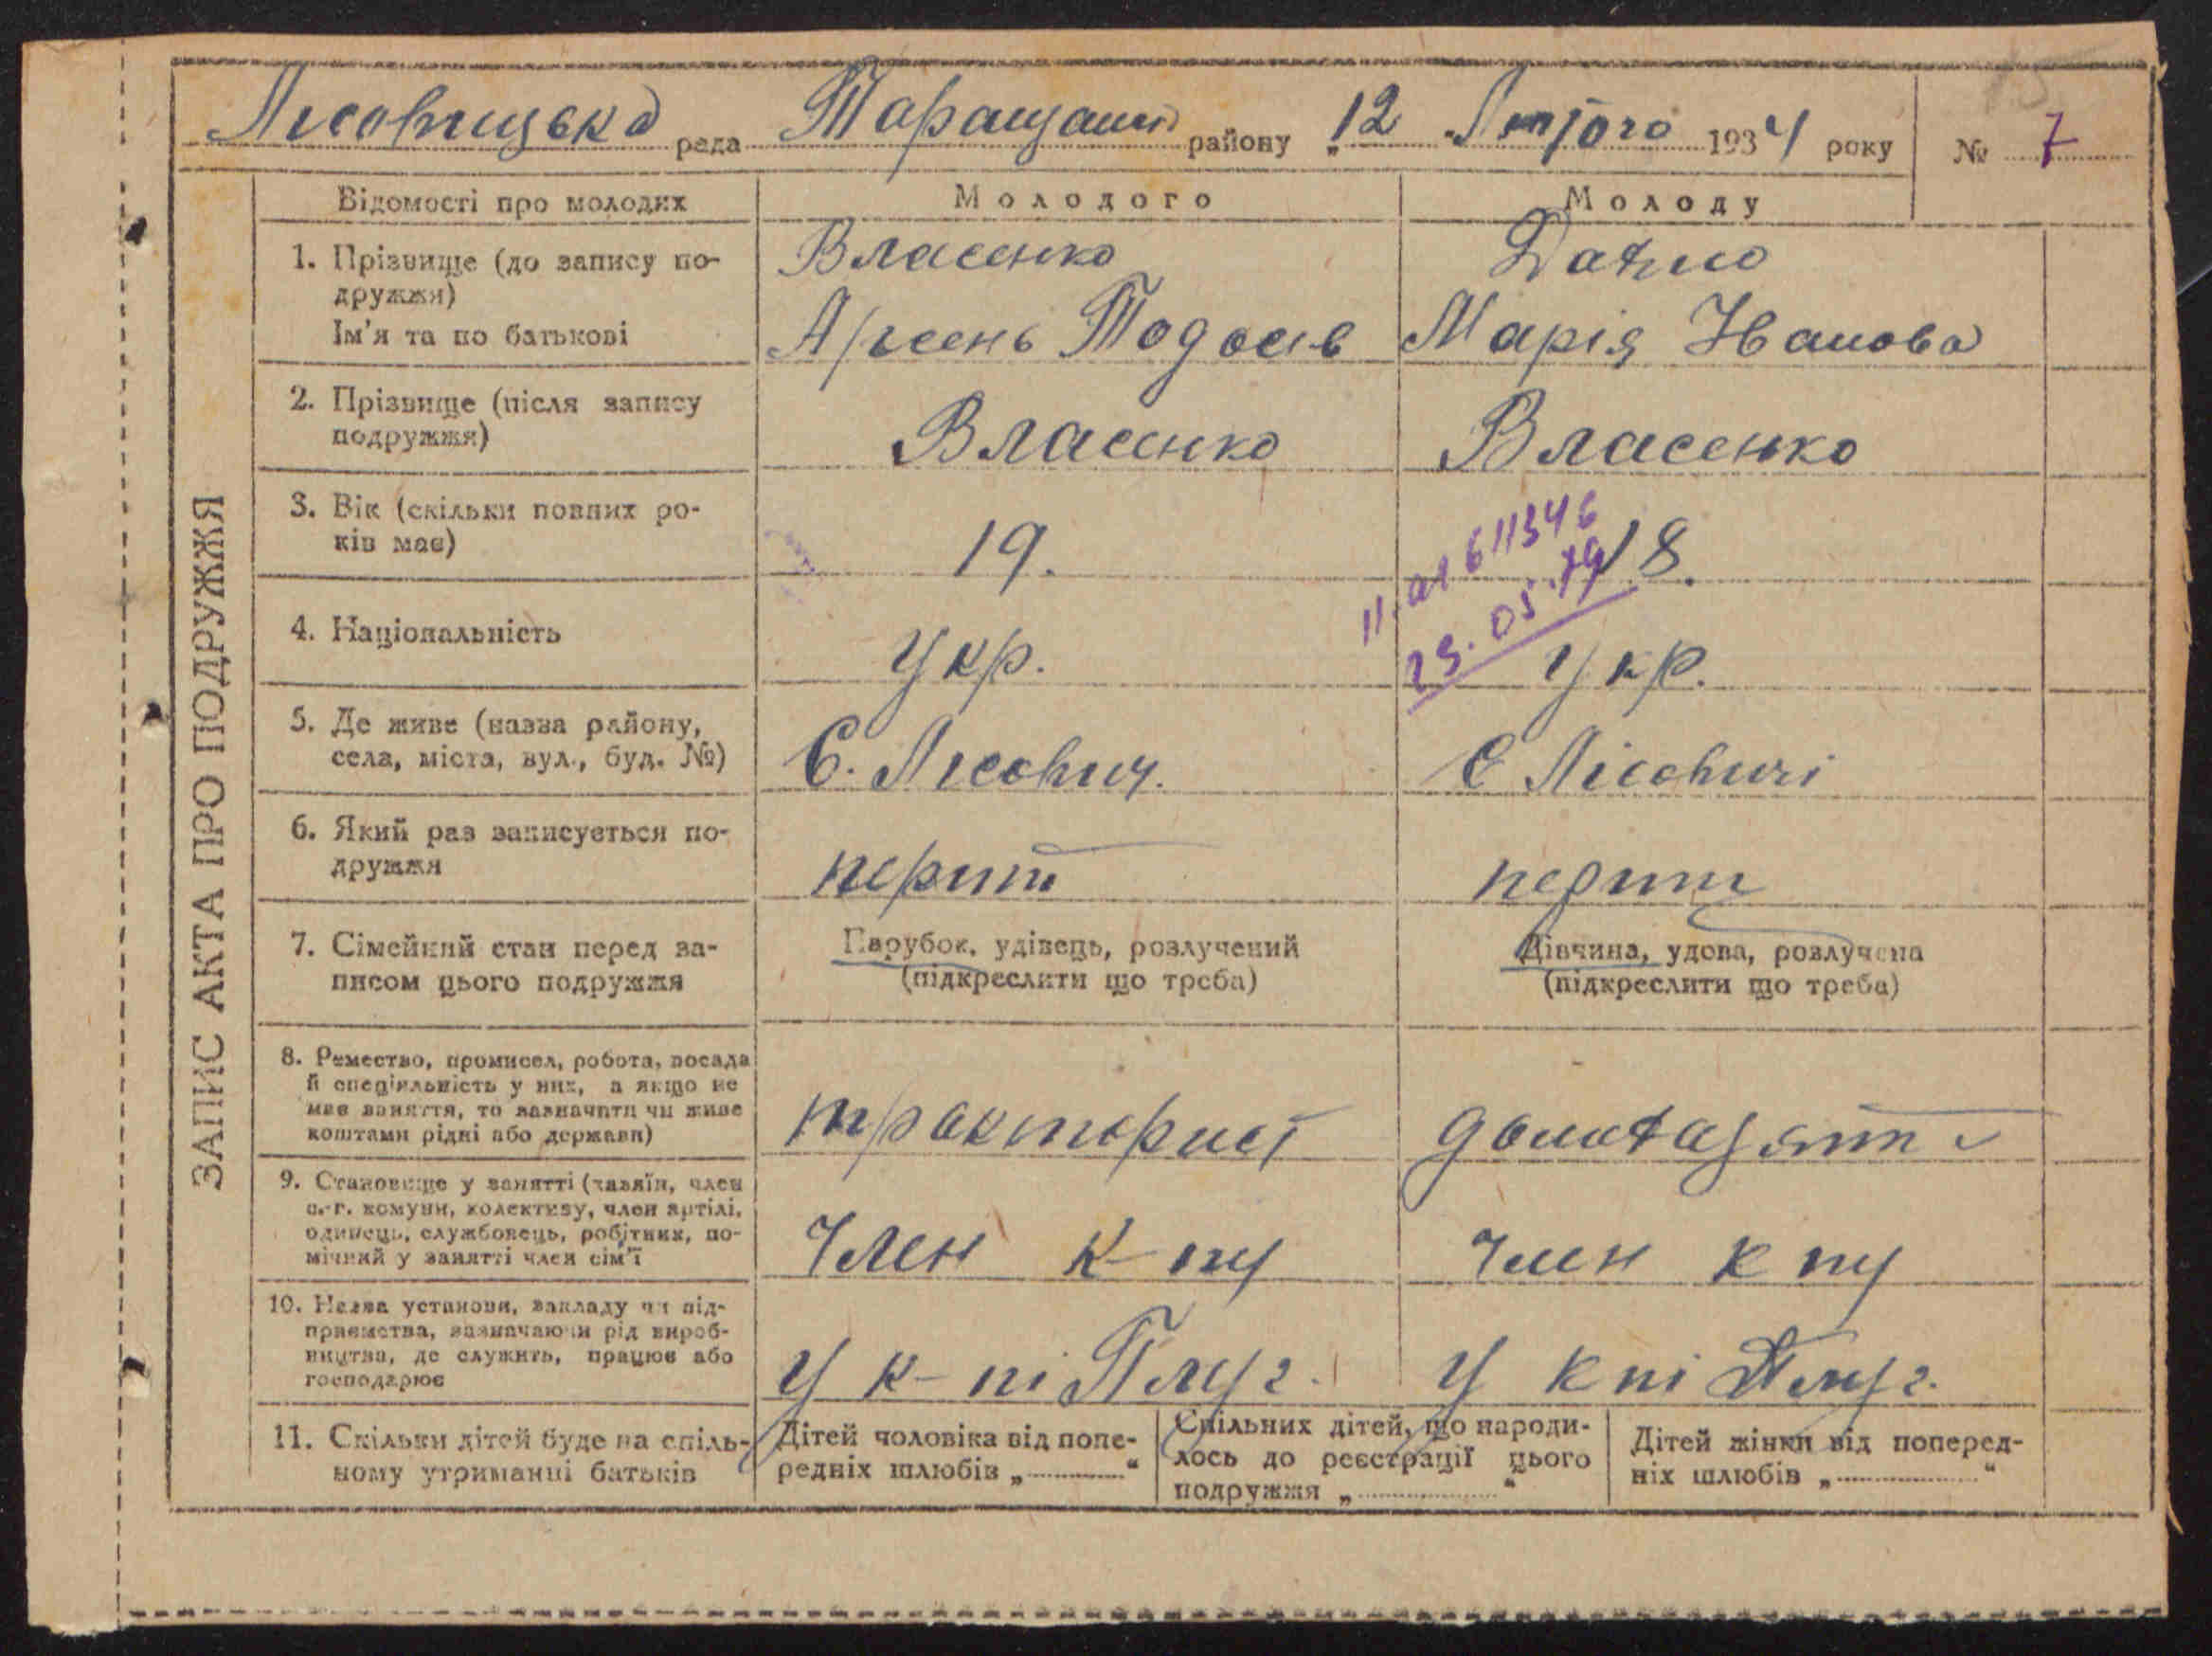 Лисовицька рада Таращанс району „12 "Лютого 1934 року № 7
ЗАПИС АКТА ПРО ПОДРУЖЖЯ
Відомості про молодих Молодого Молоду
1. Прізвище (до запису по-
дружжя)
Власенко
Ім'я та по батькові
Арсень Тодосів Марія Іванова
2. Прізвище (після запису
подружжя)
Власенко Власенко
3. Вік (скільки повних ро-
ків має)
19. 18.
611346
23.05.79
4. Національність
Укр. Укр.
5. Де живе (назва району,
села, міста, вул., буд. №)
С. Лісович. С Лісовичі
6. Який раз записується по-
дружжя
перши перши
7. Сімейний стан перед за-
писом цього подружжя
Парубок, удівець, розлучений
(підкреслити що треба)
Дівчина, удова, розлучена
(підкреслити що треба)
8. Ремество, промисел, робота, посада
й спеціяльність у них, а якщо не
має заняття, то зазначити чи живе
коштами рідні або держави)
тракторист
9. Становище у занятті (хазяїн, член
с.-г. комуни, колективу, член артілі,
одинець, службовець, робітник, по-
мічний у занятті член сім'ї
Член к-пу член к пу
10. Назва установи, закладу чи під-
приємства, зазначаючи рід вироб-
ництва, де служить, працює або
господарює
у к-пі Плуг. у к пі Плуг.
11. Скільки дітей буде на спіль-
ному утриманні батьків
Дітей чоловіка від попе-
редніх шлюбів „ "
Спільних дітей, що народи-
лось до реєстрації цього
подружжя „ "
Дітей жінки від поперед-
ніх шлюбів „ "